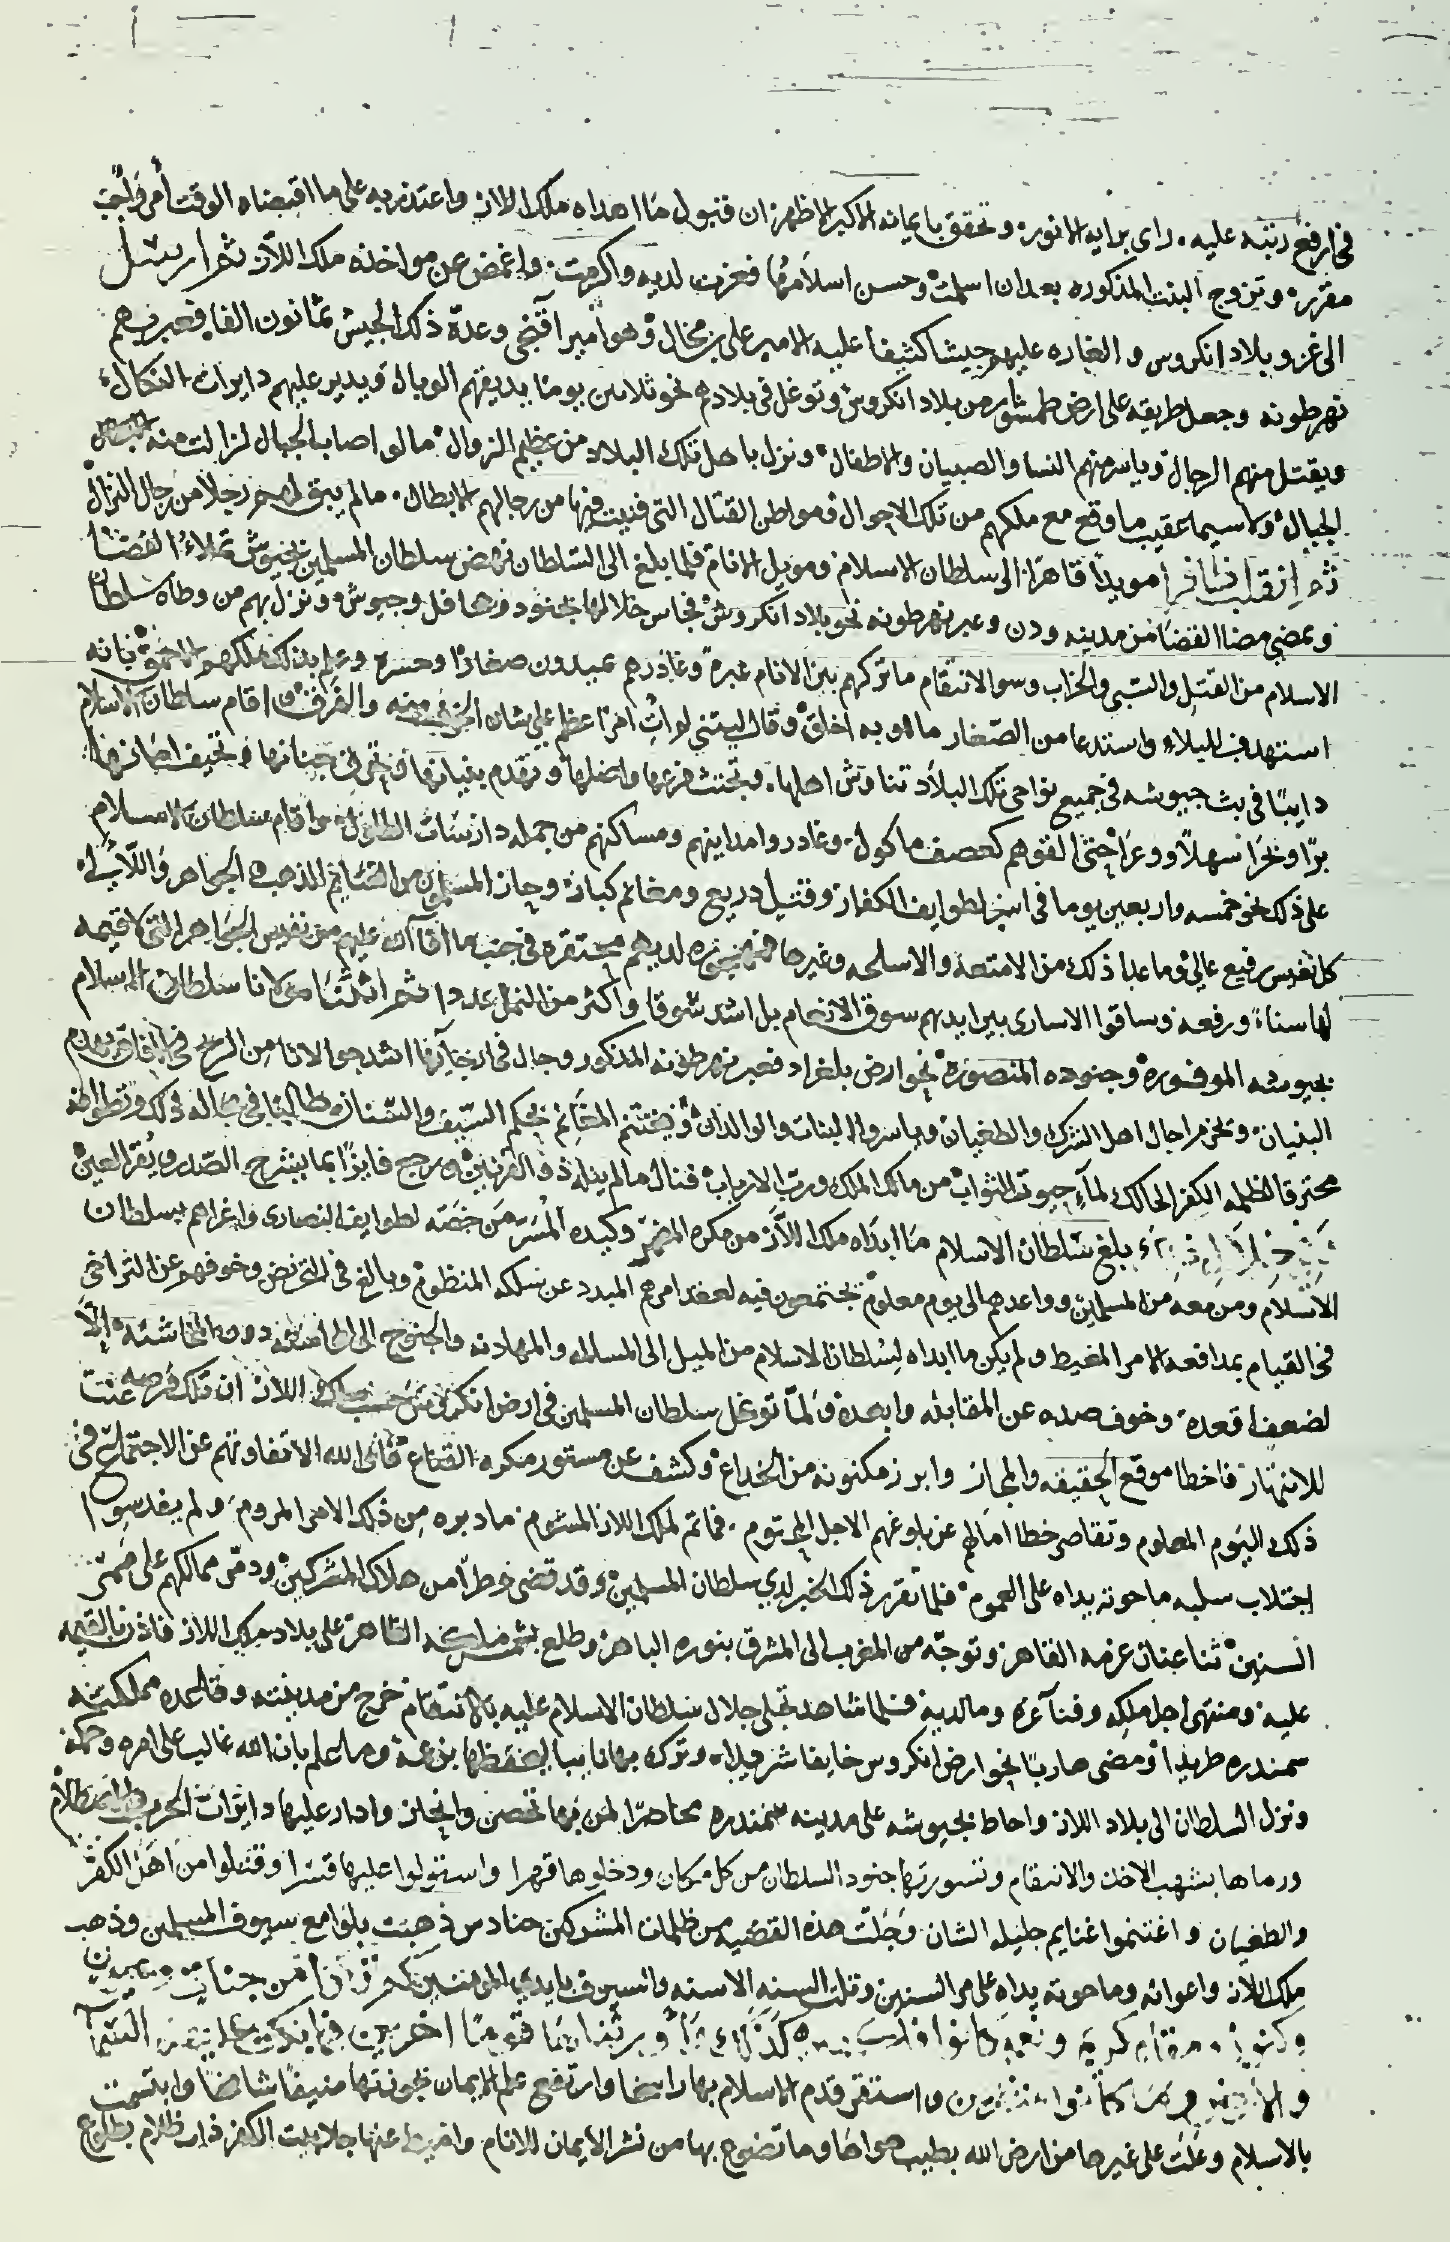 في ارفع رتبه عليه، راى برايه الانور، وتحقق بايمانه الاكبر الاظهر، ان قبول ما اهداه ملك اللاذ واعتذر به على ما اقتضاه الوقت أمر
مقرر، وتزوج البنت المذكوره بعد ان اسلمت وحسن اسلامها فعزت لديه واكرمت، واغمض عن مواخذه ملك اللاذ ثم ارسل
الى غزو بلاد انكروس والغاره عليهم جيشا كثيفا عليه الامير على بن مخال وهو امير اقنجى وعدة ذلك الجيش ثمانون الفا فعبر بهم
نهر طونه وجعل طريقه على ارض طمشوار من بلاد انكروش وتوغل فى بلادهم نحو ثلاثين يوما يذيقهم الوبال ويدير عليهم دايرات النكال،
ويقتل منهم الرجال وياسر منهم النسا والصبيان والاطفال، ونزل باهل تلك البلاد من عظيم الزوال، ما لو اصاب الجبال لزالت منه
الجبال، ولا سيما عقيب ما وقع مع ملكهم من تلك الاحوال ومواطن القتال التى فنيت فيها من رجالهم الابطال، مالم يبق لهم رجلا من رجال النزال
ثم انقلب ظافرا مويدا قاهرا الى سلطان الاسلام وموبل الانام فلما بلغ الى السلطان نهض سلطان المسلمين بجيوش تملاء الفضا
وتمضي مضا القضا من مدينه ودن وعبر نهر طونه نحو بلاد انكروش فجاس خلالها بجنود وجحافل وجيوش، ونزل بهم من وطاه سلطان
الاسلام من القتل والسبي والخراب وسو الانتقام ما تركهم بين الانام عبرة وغادرهم يميدون صغارا وحسره وعلم بذلك ملكهم الاحمق بانه
استهدف للبلاء واستدعا من الصغار ما هو به اخلق، وقال ليتني لو ات امرا عظم على شان والفرق واقام سلطان الاسلام
دايبا فى بث جيوشه فى جميع نواحى تلك البلاد تناوش اهلها، وتجتث فرعها واصلها، وتهدم بنيانها
برا وبحرا سهلا ووعرا حتى القوهم كعصف ماكول، وغادروا مداينهم ومساكنهم من جمله دارسات الطلول، واقام سلطان الاسلام
على ذلك نحو خمسه واربعين يوما فى اسر لطوايف الكفار، وقتل ذريع ومغانم كبار، وحاز المسلمون من الغنايم الذهب والجواهر واللآلي،
كل نفيس رفيع عالي، وما عدا ذلك من الامتعه والاسلحه وغيرها لديهم محتقره فى جنب ما افآ الله عليهم من نفيس الجواهر التى لا قيمه
لها سناء ورفعه وساقوا الاسارى بين ايديهم سوق الانعام بل اشد سوقا واكثر من النمل عددا ثم انثنا مولانا سلطان الاسلام
بجيوشه الموفوره وجنوده المنصوره نحو ارض بلغراد فعبر نهر طونه المذكور وجال فى ارجآئها
البنيان، ويخترم اجال اهل الشرك والطغيان، وياسر البنات والولدان، ويغتنم المغانم بحكم السيف والسنان
محترقا لظلمه الكفر الحالك لمآء جيوق الثواب من مالك الملك ورب الارباب، فنال ما لم ينله ذو القرنين، ورجع فايزا بما يشرح الصدر ويقر العين،
بلغ سلطان الاسلام ما ابداه ملك اللاذ من مكره المضمر وكيده المسر من حضه لطوايف النصارى واغراهم بسلطان
الاسلام ومن معه من المسلمين وواعدهم الى يوم معلوم يجتمعون فيه لعقد امرهم المبدد عن سلكه المنظوم، وبالغ فى التحريض وخوفهم عن التراخي
فى القيام بمدافعه الامر المغيظ ولم يكن ما ابداه لسلطان الاسلام من الميل الى المسالمه والمهادنه والجنوح الى الملاطفه دون المخاشنه، الا
لضعف اقعده، وخوف صده عن المقابله وابعده، ولما توغل سلطان المسلمين فى ارض انكروش حسب ملك اللاذ ان تلك فرصه عنت
للانتهاز، فاخطا موقع الحقيقه والمجاز وابرز مكنونه من الخداع، وكشف عن مستور مكره القناع، فابى الله الا تفاوتهم عن الاجتماع فى
ذلك اليوم المعلوم وتقاصر خطا امالهم عن بلوغهم الاجل المحتوم، فما تم لملك اللاذ المشوم، ما دبره من ذلك الامر المروم، ولم يفد سوا
اجتلاب سلبه ما حوته يداه على العموم، فلما تقرر ذلك الخبر لدي سلطان المسلمين، وقد قضى وطرا من هلاك المشركين، ودمر ممالكهم على ممر
السنين، ثنا عنان عزمه القاهر، وتوجه من المغرب الى المشرق بنوره الباهر، وطلع بشمس ملكه الظاهر على بلاد ملك اللاذ
عليه، ومنتهى اجل ملكه وفنآ عزه وما لديه، فلما شاهد تجلى جلال سلطان الاسلام عليه بالانتقام خرج من مدينته وقاعده مملكته
سمندره طريدا، ومضى هاربا نحو ارض انكروس خايفا شريدا، وترك بها نايبا لحفظها بزعمه وما علم بان الله غالب على امره وحكمه
ونزل السلطان الى بلاد اللاذ واحاط بجيوشه على مدينه سمندره محاصرا لمن بها تحصن وانحاز وادار عليها دايرات الحرب
ورماها بشهب الاخذ والانتقام وتسورتها جنود السلطان من كل مكان ودخلوها قهرا واستولوا عليها قسرا وقتلوا من اهل الكفر
والطغيان واغتنموا غنايم جليله الشان وجلت هذه القضيه من ظلمات المشركين حنادس ذهبت بلوامع سيوف المسلمين وذهب
ملك اللاذ واعوانه وما حوته يداه على مر السنين وتلت السنه الاسنه والسيوف بايدي المومنين كم تركوا من جنات وعيون
وكنوز ومقام كريم ونعمه كانوا فيها فاكهين كذلك واورثناها قوما اخرين فما بكت عليهم السمآ
والارض وما كانوا منظرين واستقر قدم الاسلام بها راسخا وارتفع علم الايمان بحوزتها منيفا شامخا وابتسمت
بالاسلام وعلت على غيرها من ارض الله بطيب هواها وما تضوع بها من نشر الايمان للانام وانجلا عنها جلابيب الكفر ذات ظلام بطلوع